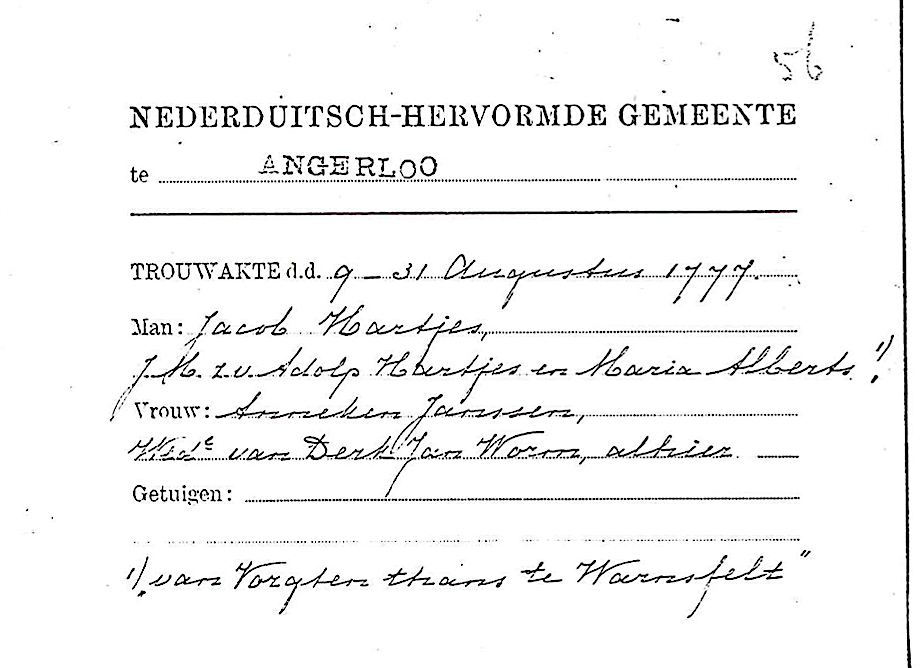 56
NEDERDUITSCH-HERVORMDE GEMEENTE
te ANGERLOO
TROUWAKTE d.d. 9 – 31 Augustus 1777.
Man: Jacob Hartjes,
J.M. z.v. Adolp Hartjes en Maria Alberts 1)
Vrouw: Anneken Janssen,
Wede van Derk Jan Worm, alhier
Getuigen:
1) „van Vorgten thans te Warnsfelt"